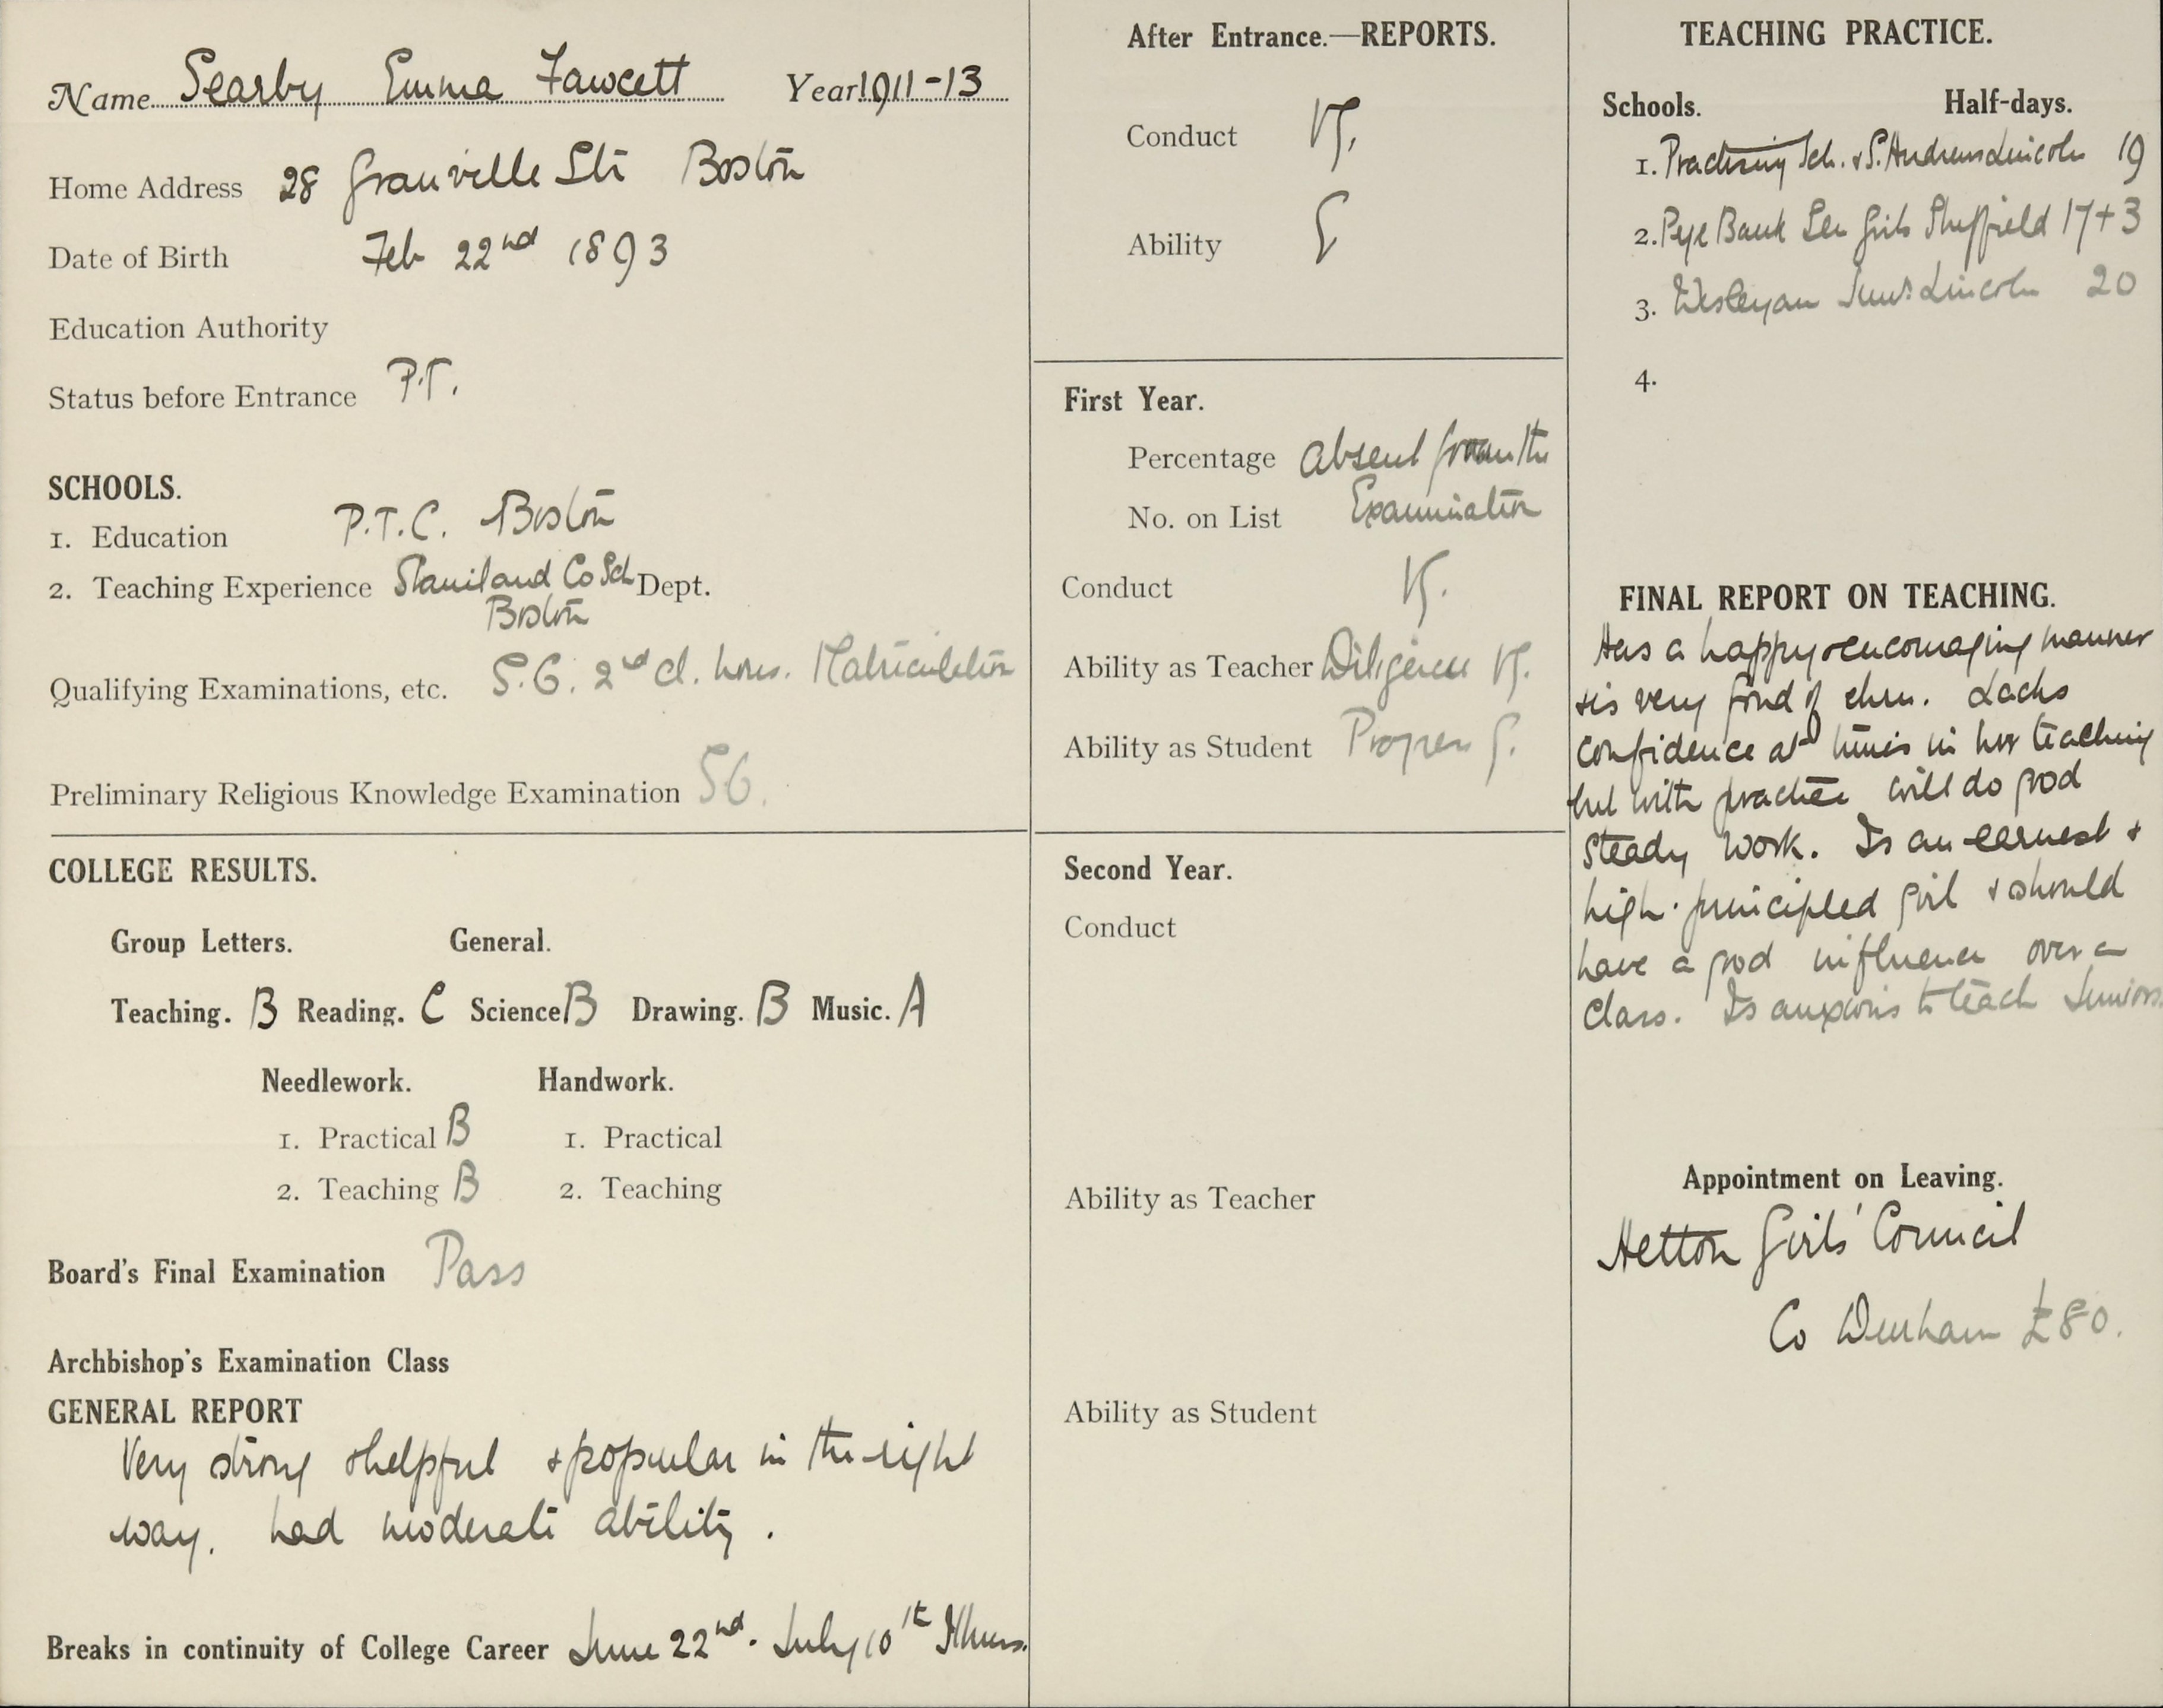 Name Searby Emma Fawcett Year 1911-13
Home Address 28 Granville Str Boston
Date of Birth Feb 22nd 1893
Education Authority
Status before Entrance P.T.
SCHOOLS.
1. Education P.T.C. Boston
2. Teaching Experience Staniland Co Sch Dept.
Boston
Qualifying Examinations, etc. S.C. 2nd cl. hons. Matriculation
Preliminary Religious Knowledge Examination
COLLEGE RESULTS.
Group Letters. General.
Teaching. B Reading. C Science B Drawing. B Music. A
Needlework. Handwork.
1. Practical B 1. Practical
2. Teaching B 2. Teaching
Board's Final Examination Pass
Archbishop's Examination Class
GENERAL REPORT
Very strong & helpful & popular in the right
way. had moderate ability.
Breaks in continuity of College Career June 22nd - July 10th Illness.
After Entrance.—REPORTS.
Conduct VG.
Ability G
First Year.
Percentage Absent from the
No. on List Examination
Conduct VG.
Ability as Teacher Diligence VG.
Ability as Student Progress G.
Second Year.
Conduct
Ability as Teacher
Ability as Student
TEACHING PRACTICE.
Schools. Half-days.
1. Practising Sch. & S. Andrews Lincoln 19
2. Pye Bank Sen Girls Sheffield 17+3
3. Wesleyan Junrs Lincoln 20
4.
FINAL REPORT ON TEACHING.
Has a happy & encouraging manner
& is very fond of chn. Lacks
confidence at times in her teaching
but with practice will do good
steady work. Is an earnest &
high-principled girl & should
have a good influence over a
class. Is anxious to teach Juniors.
Appointment on Leaving.
Hetton Girls' Council
Co Durham £80.